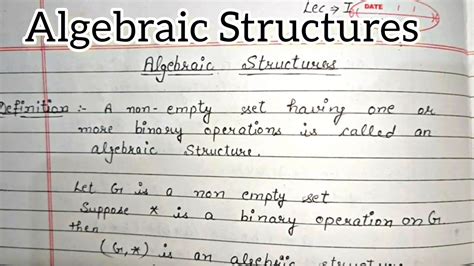 Lec ⇒ I
DATE
Algebraic Structures
Algebraic Structures
Definition :- A non-empty set having one or
more binary operations is called an
algebraic Structure.
Let G is a non empty set
Suppose * is a binary operation on G.
then
(G,*) is an algebraic structure